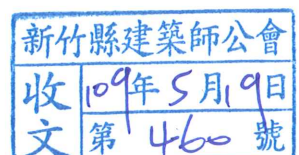 新竹縣建築師公會
收文
109年5月19日
第460號